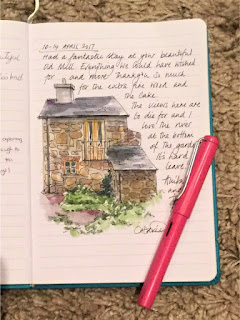 10-14 APRIL 2017
Had a fantastic stay at your beautiful
Old Mill. Everything we could have wished
for and more! Thankyou so much
for the extra fire wood and
the cake.
The views here are
to die for and I
love the river
at the bottom
of the garden
It's hard
leave
and